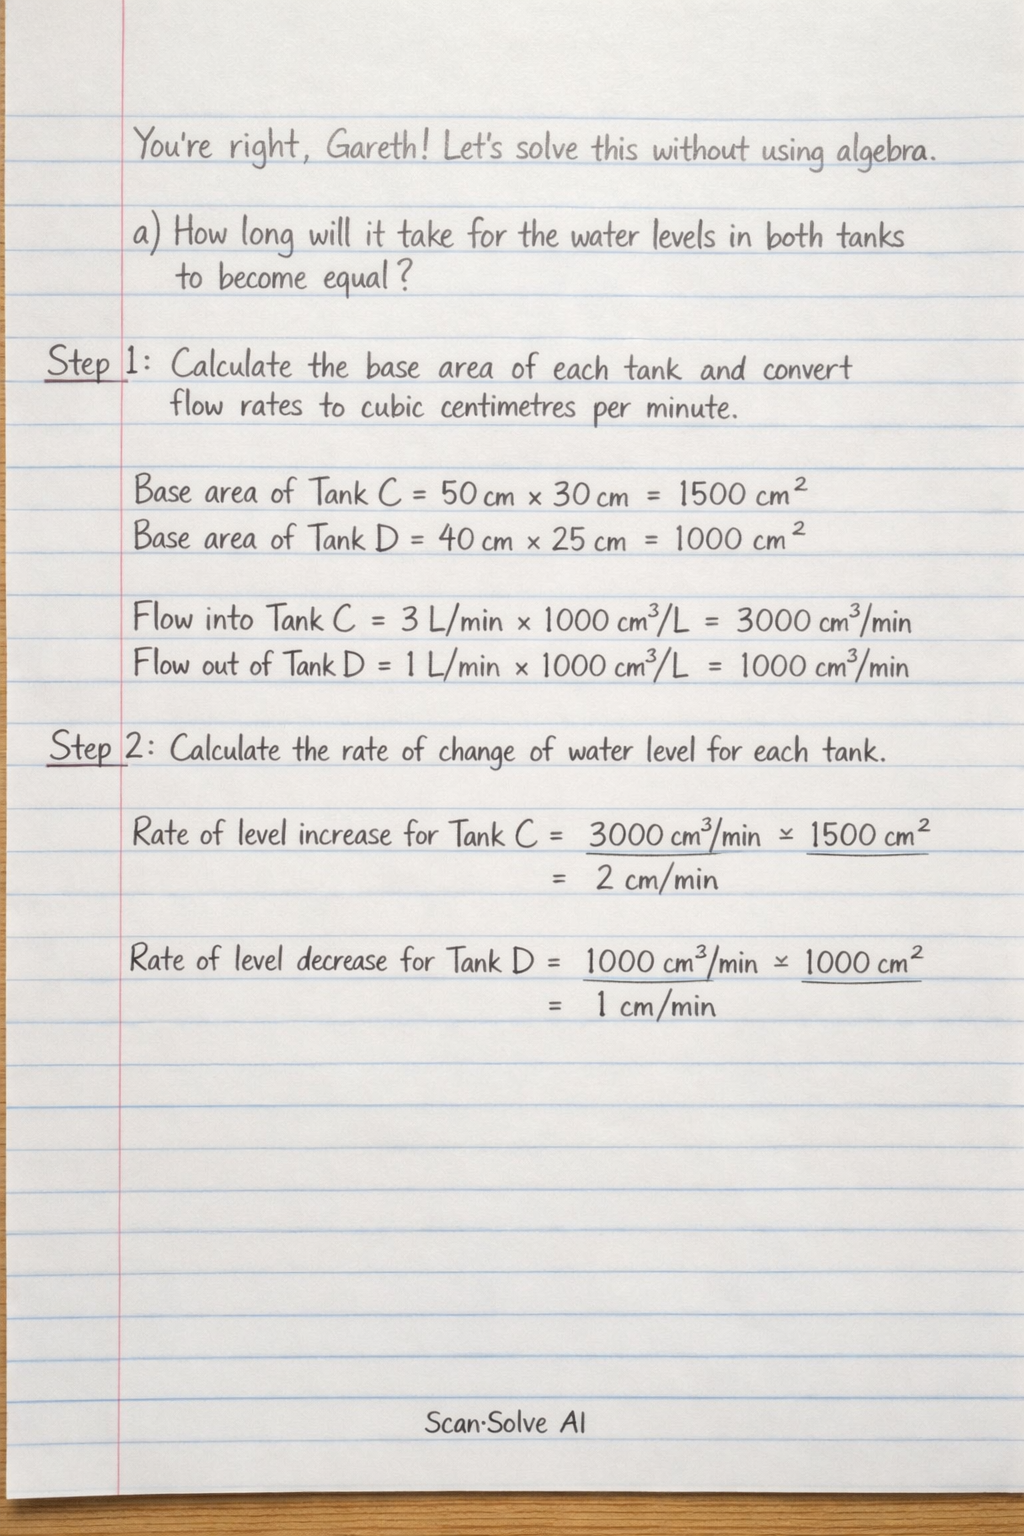 You're right, Gareth! Let's solve this without using algebra.
a) How long will it take for the water levels in both tanks
to become equal?
Step 1: Calculate the base area of each tank and convert
flow rates to cubic centimetres per minute.
Base area of Tank C = 50 cm × 30 cm = 1500 cm²
Base area of Tank D = 40 cm × 25 cm = 1000 cm²
Flow into Tank C = 3 L/min × 1000 cm³/L = 3000 cm³/min
Flow out of Tank D = 1 L/min × 1000 cm³/L = 1000 cm³/min
Step 2: Calculate the rate of change of water level for each tank.
Rate of level increase for Tank C = 3000 cm³/min ⨰ 1500 cm²
= 2 cm/min
Rate of level decrease for Tank D = 1000 cm³/min ⨰ 1000 cm²
= 1 cm/min
Scan·Solve AI